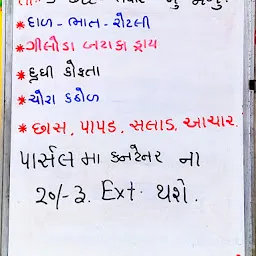 * દાળ - ભાત - રોટલી
* ગીલોડા બટાકા ફ્રાય
* દુધી કોફતા
* ચોરા કઠોળ
* છાસ, પાપડ, સલાડ, આચાર.
પાર્સલ મા કન્ટેનર ના
20/- રૂ. Ext. થશે.